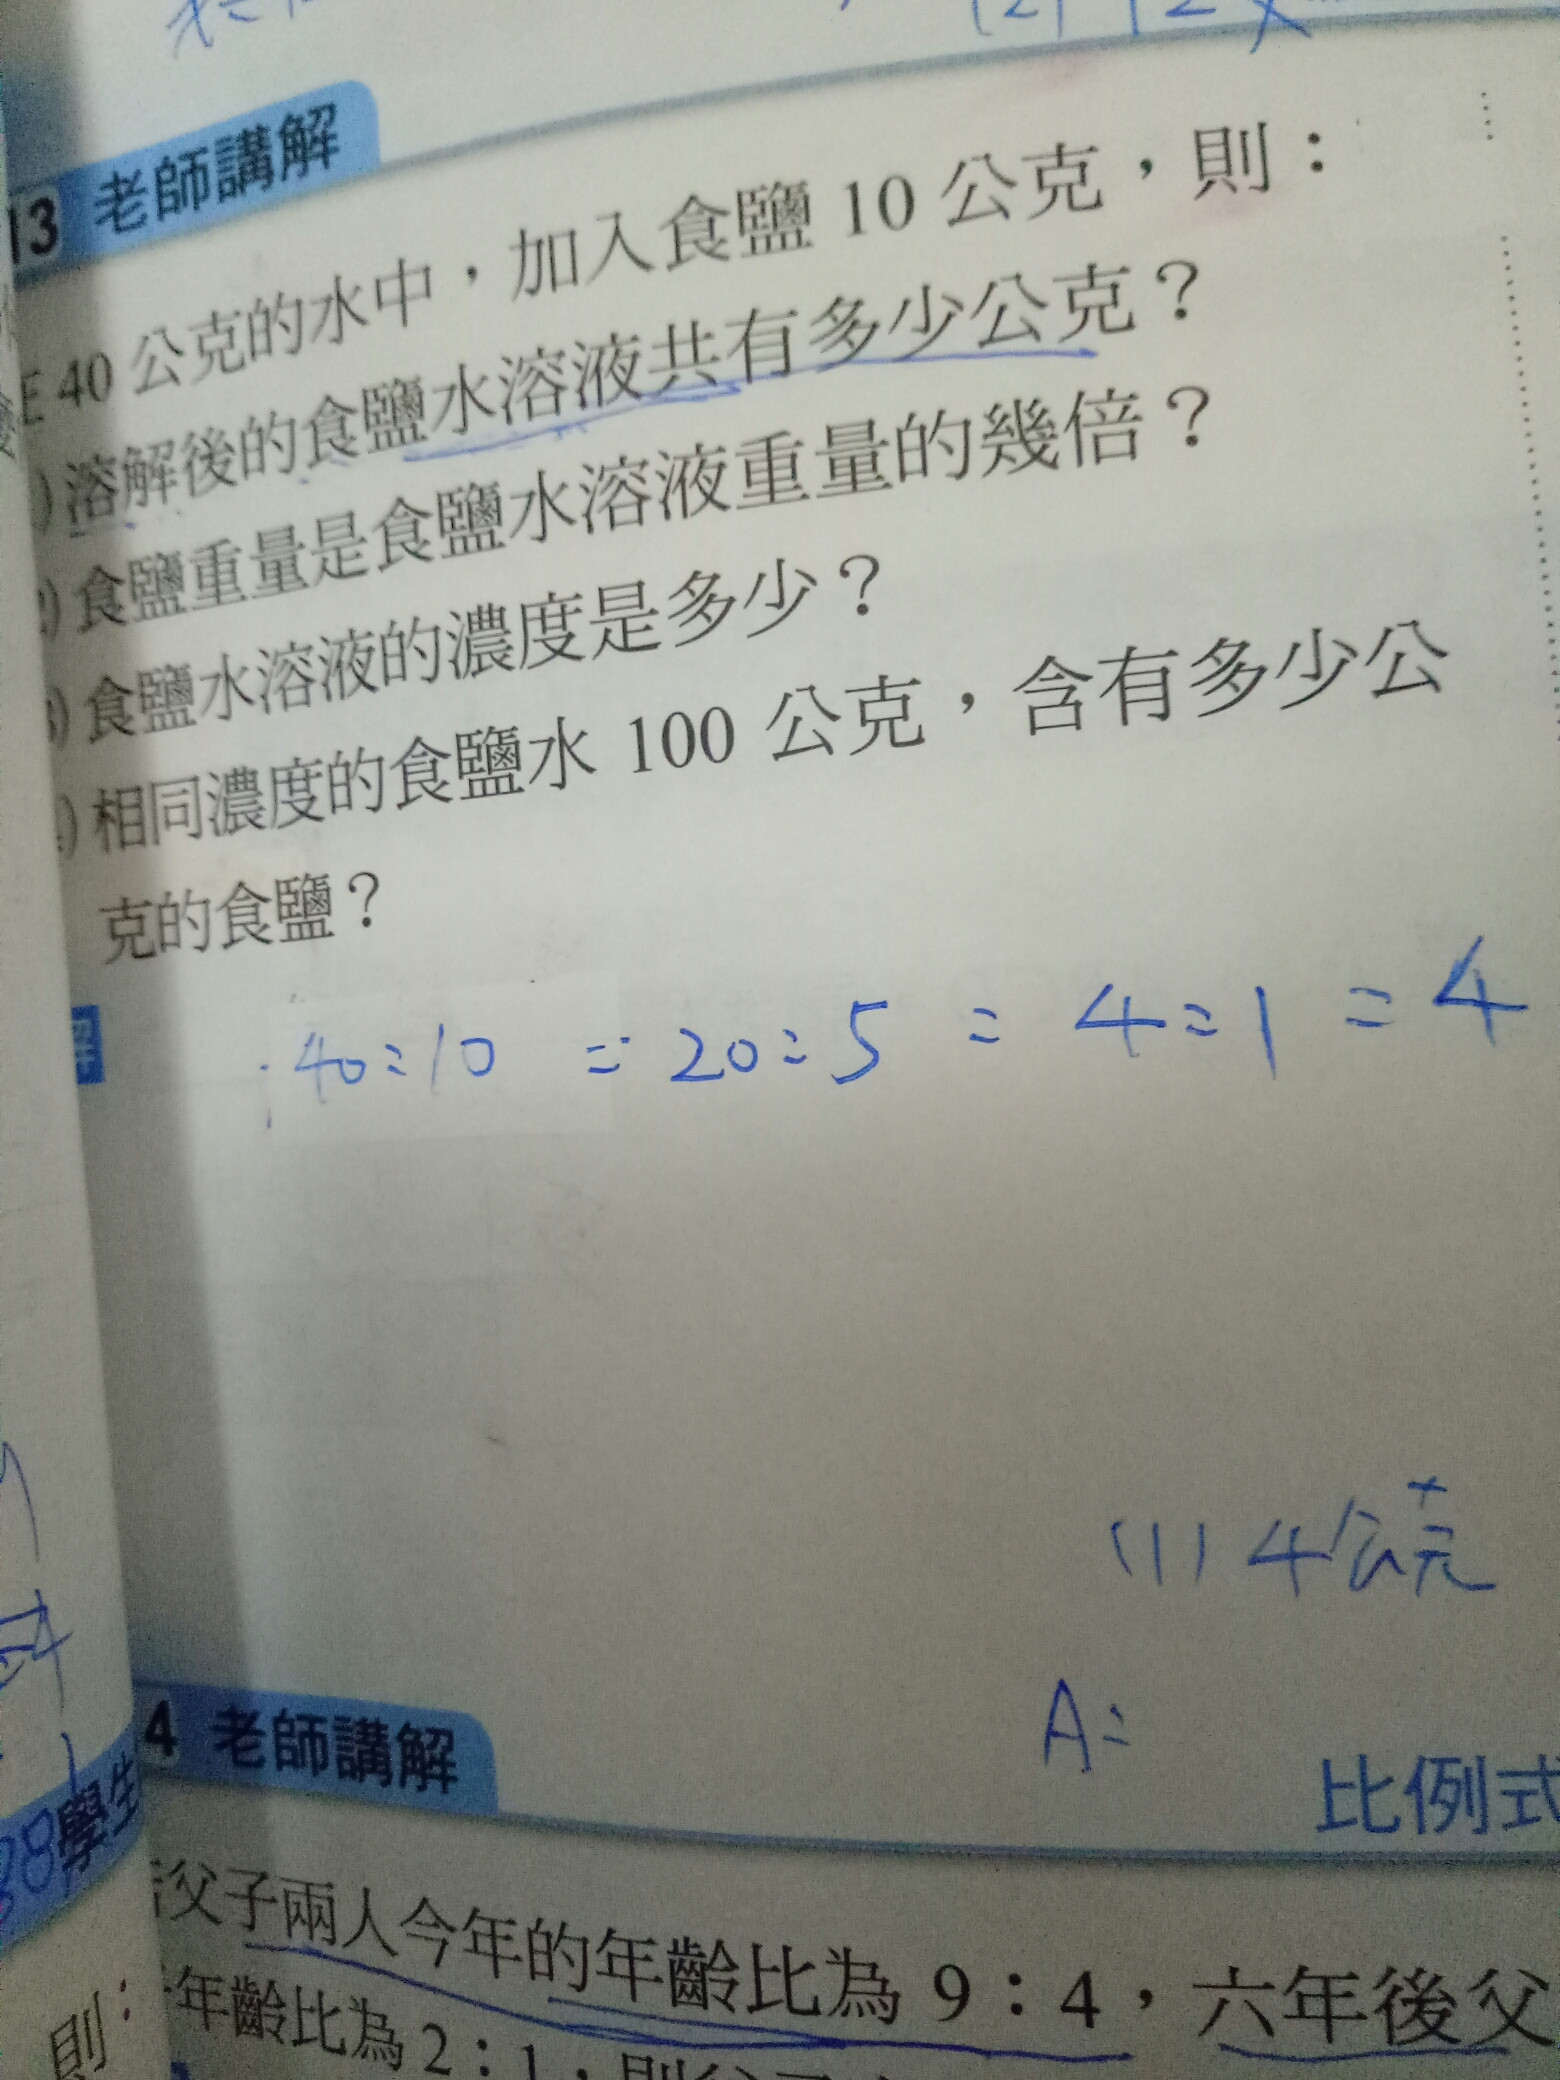 13 老師講解
40 公克的水中，加入食鹽 10 公克，則：
) 溶解後的食鹽水溶液共有多少公克？
2) 食鹽重量是食鹽水溶液重量的幾倍？
3) 食鹽水溶液的濃度是多少？
) 相同濃度的食鹽水 100 公克，含有多少公
克的食鹽？
40:10 = 20:5 = 4:1 = 4
(1) 4公克
A:
4 老師講解
比例式
父子兩人今年的年齡比為 9：4，六年後父
年齡比為 2：1，
38學生
則：